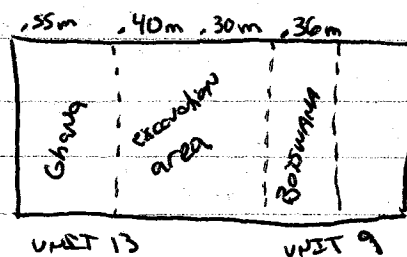 .55m .40m .30m .36m
Ghana
excavation
area
BOTSWANA
UNIT 13 UNIT 9